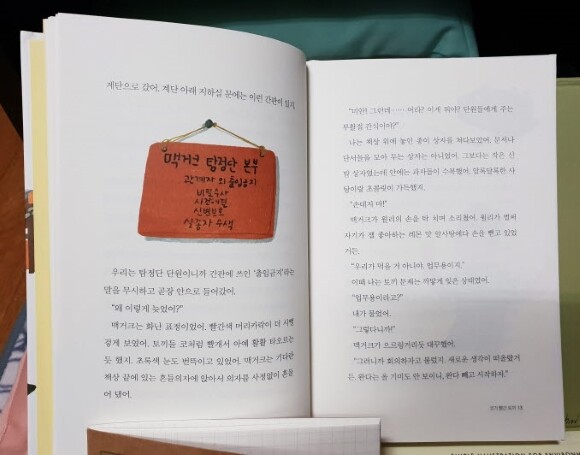 계단으로 갔어. 계단 아래 지하실 문에는 이런 간판이 있지
맥거크 탐정단 본부
관계자 외 출입금지
비밀수사
사건해결
신변보호
실종자 수색
우리는 탐정단 단원이니까 간판에 쓰인 '출입금지'라는
말을 무시하고 곧장 안으로 들어갔어.
"왜 이렇게 늦었어?"
맥거크는 화난 표정이었어. 빨간색 머리카락이 더 시뻘
겋게 보였어. 토끼들 코처럼 빨개서 아예 활활 타오르는
듯 했지. 초록색 눈도 번뜩이고 있었어. 맥거크는 기다란
책상 끝에 있는 흔들의자에 앉아서 의자를 사정없이 흔들
어 댔어.
그런데…… 뭐라? 이게 뭐야? 단원들에게 주는
부활절 간식이야?"
나는 책상 위에 놓인 종이 상자를 쳐다보았어. 문서나
단서들을 모아 두는 상자는 아니었어. 그보다는 작은 신
발 상자였는데 안에는 과자들이 수북했어. 알록달록한 사
탕이랑 초콜릿이 가득했지.
"손대지 마!"
맥거크가 윌리의 손을 탁 치며 소리쳤어. 윌리가 벌써
자기가 젤 좋아하는 레몬 맛 알사탕에다 손을 뻗고 있었
거든.
"우리가 먹을 거 아니야. 업무용이지."
이때 나는 토끼 문제는 까맣게 잊은 상태였어.
"업무용이라고?"
내가 물었어.
"그렇다니까!"
맥거크가 으르렁거리듯 대꾸했어.
"그러니까 회의하자고 불렀지. 새로운 생각이 떠올랐거
든. 완다는 올 기미도 안 보이니, 완다 빼고 시작하자."
13